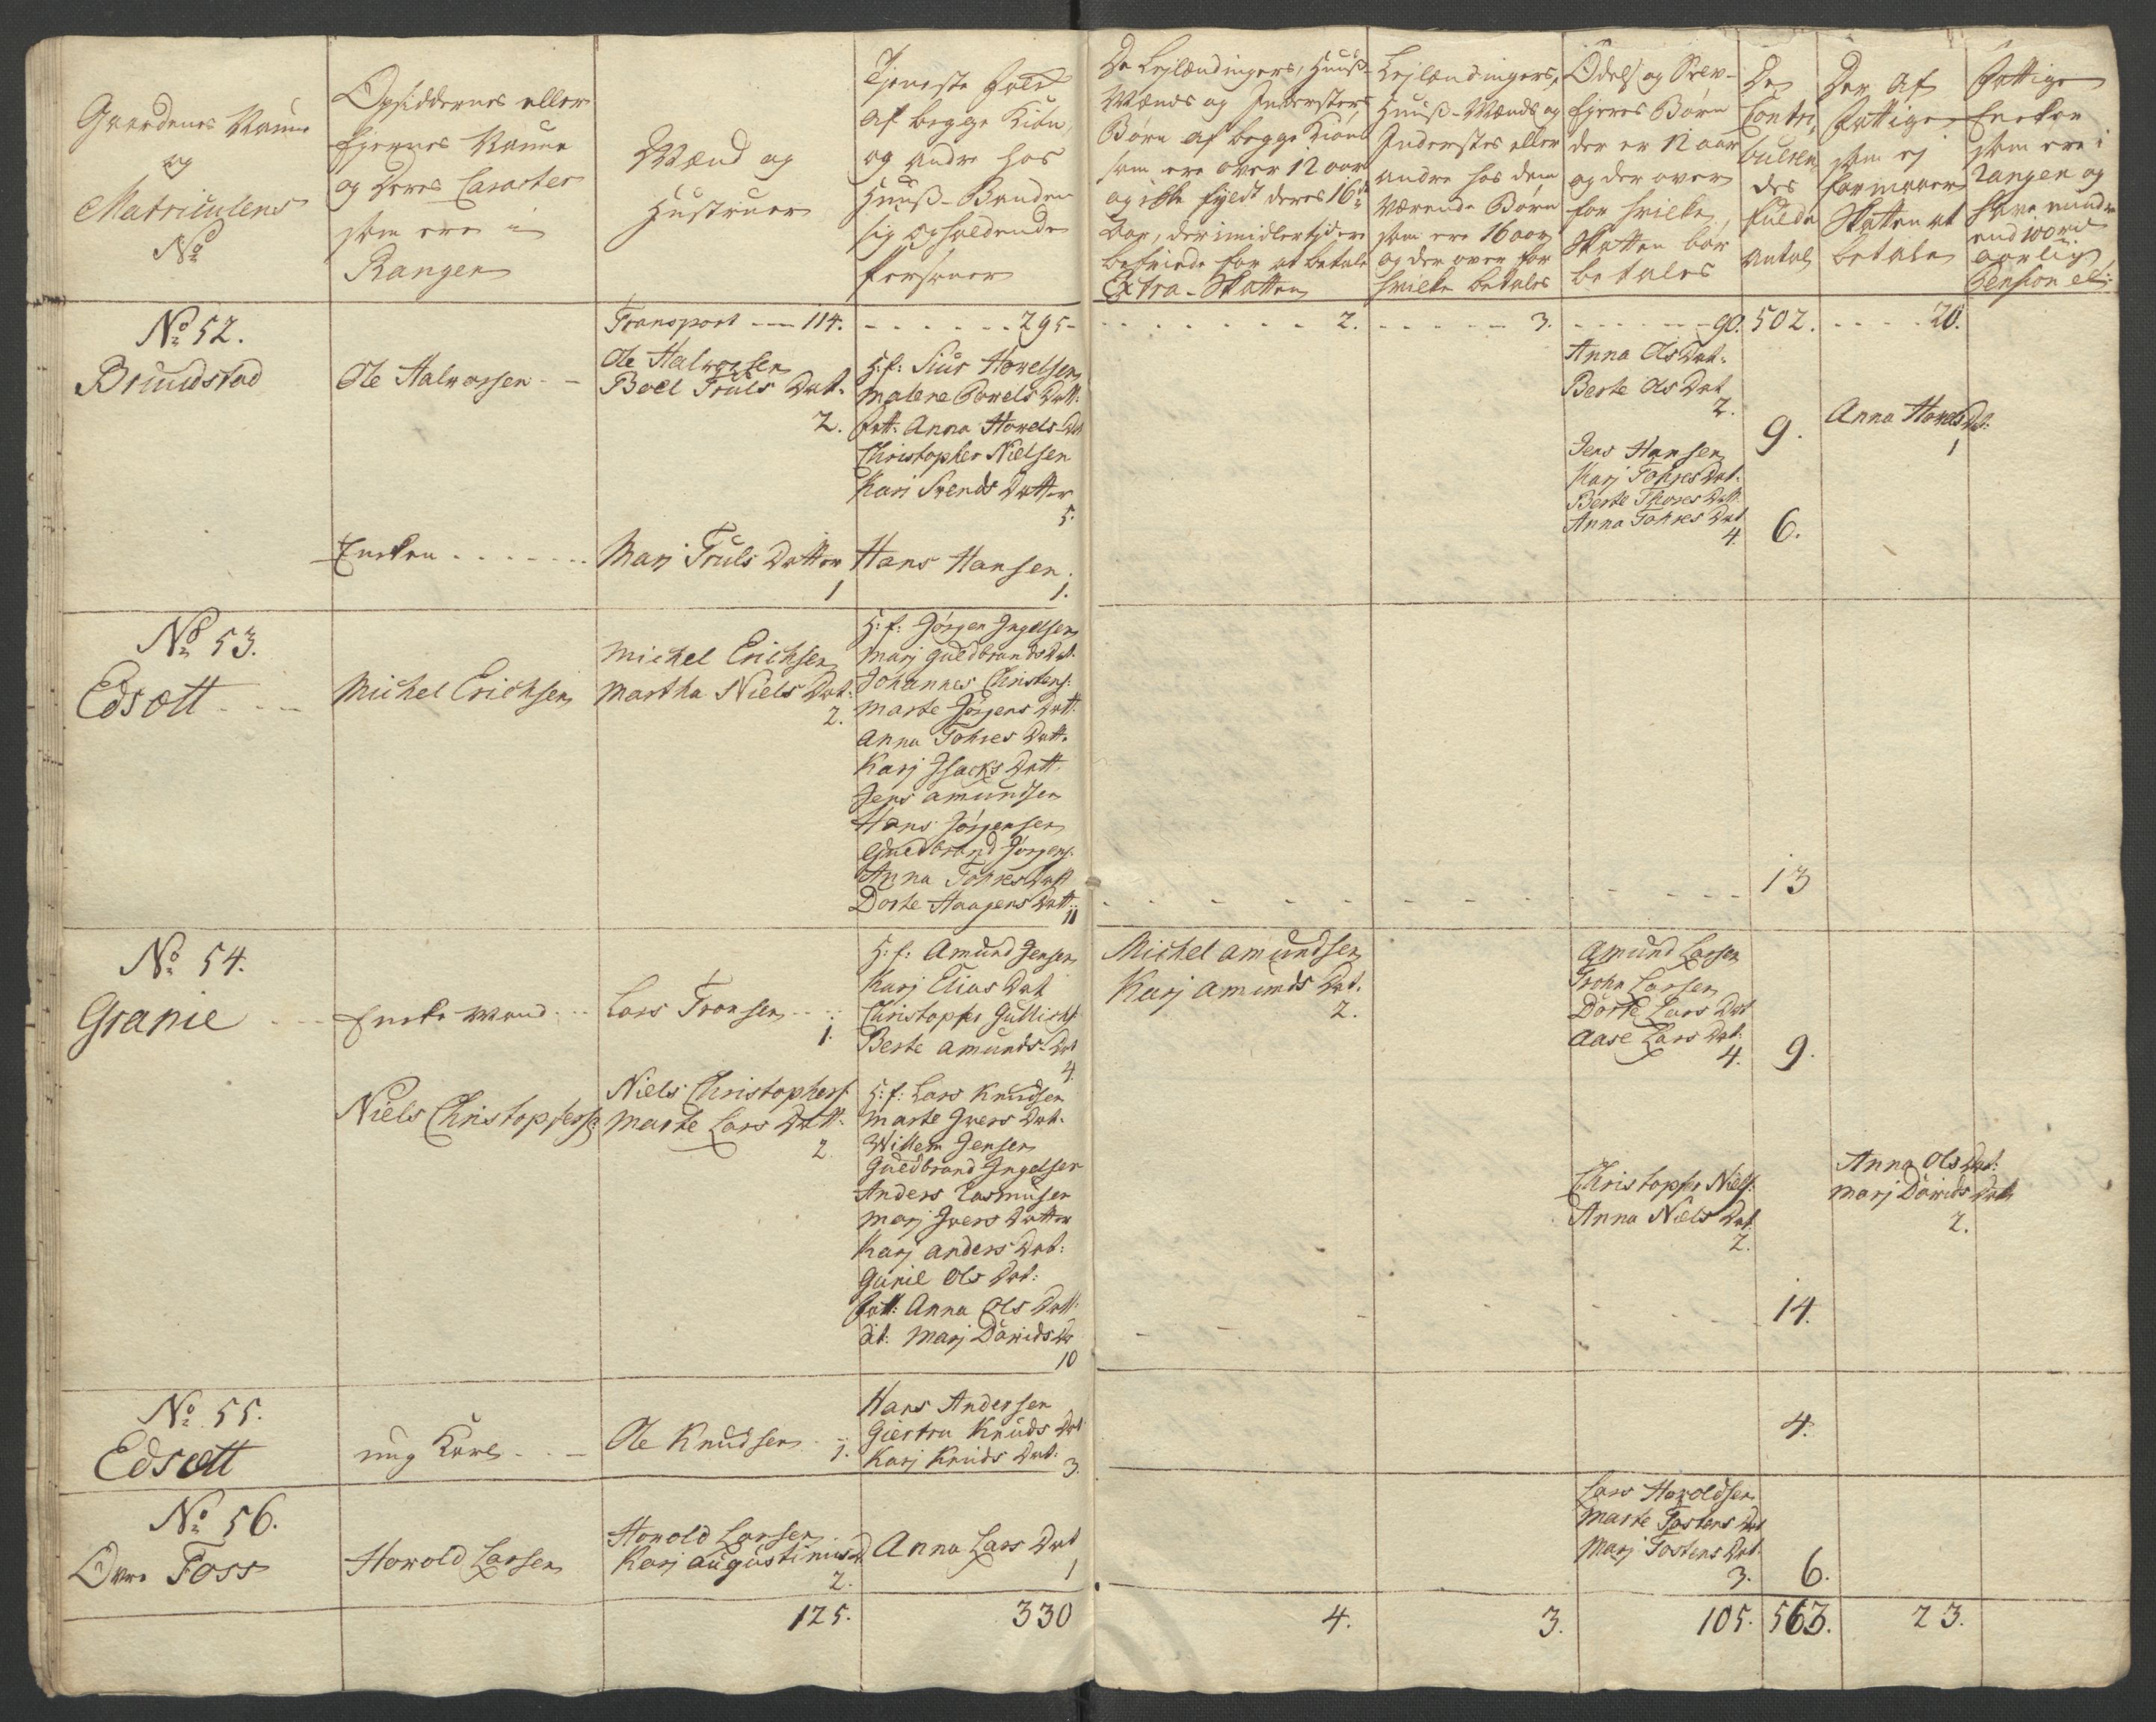 Gaardenes Nafne
og
Matriculens
No
Opsiddernes eller
Ejernes Nafne
og deres Caracter
som ere i
Rangen
Mænd og
Hustruer
Tjeneste Folk
af begge Kiøn,
og andre hos
Huus-Bonden
sig opholdende
Personer
De Lejlændingers, Huus-
Mænds og Inderster
Børn af begge Kiøn
som ere over 12 aar
og ikke fyldt deres 16de
Aar, der imidlertid ere
befriede for at betale
Extra-Skatten
Lejlændingers,
Huus-Mænds og
Inderstes eller
andre hos dem
værende Børn
som ere 16 aar
og der over for
hvilke betales
Odels og Selv-
Ejeres Børn
der er 12 aar
og der over
for hvilke
Skatten bør
betales
De
Contri-
bueren-
des
fulde
Antal
Der af
Fattige
som ej
formaaer
Skatten at
betale
Fattige
Encker
som ere i
Rangen og
have mindre
end 100 rd
aarlig
Pension etc:
No 52.
Transport --- 114. - - - - - - 295 - - - - - - - 2. - - - - - 3. - - - - - 90. 502. - - - - 20.
Brundstad
Ole Halvorsen - -
Ole Halvorsen
Boel Truls Dat.
2.
H: f: Siur Howelsen
Malene Powels Datt.
Fatt. Anna Howels Dat
Christopher Nielsen
Kari Svends Datter
5.
Anna Ols Dat.
Berte Ols Dat
2.
9.
Anna Howels Dat:
1
Jens Hansen
Karj Tohres Dat.
Berte Thores Datt.
Anna Tohres Dat
4.
6.
Encken - - - - - -
Marj Truls Datter
1
Hans Hansen
1.
No 53.
Edsøtt - - -
Michel Erichsen
Michel Erichsen
Martha Niels Dat.
2.
H: f: Jørgen Ingelsen
Marj Guldbrands Dat.
Johannes Christens:
Marte Jørgens Datt.
Anna Tohres Datt.
Karj Isacks Datt.
Jens Amundsen
Hans Jørgensen
Guldbrand Jørgens.
Anna Tohres Datt
Dorte Haagens Datt:
11
13
No 54.
Granie - - -
Encke Mand - -
Lars Tronsen - -
1.
H: f: Amund Jensen
Karj Elias Dat
Christopher Gullichs.
Berte Amunds-Dat
4.
Michel Amundsen
Karj Amunds Dat.
2.
Amund Larsen
Trohn Larsen
Dorte Lars Dat
Aase Lars Dat:
4.
9.
Niels Christophersen
Niels Christophers:
Marte Lars Datt.
2.
H: f: Lars Knudsen
Marte Ivers Dat.
Willem Jensen
Guldbrand Ingelsen
Anders Rasmusen
Marj Ivers Datter
Karj Anders Dat:
Gunil Ols Dat:
Fatt: Anna Ols Datt.
dt: Marj Davids Da
10
Christopher Niels.
Anna Niels Dat.
2.
14.
Anna Ols Dat:
Marj Davids Dat
2.
No 55.
Edsøtt
ung Karl - - -
Ole Knudsen - -
1.
Hans Andersen
Giertru Knuds Dat
Karj Knuds Dat:
3.
4.
No 56.
Øvre Foss
Howold Larsen
Howold Larsen
Karj Augustinus D.
2.
Anna Lars Dat
1
Lars Howoldsen
Marte Tostens Dat
Marj Tostens Dat.
3.
6.
125. 330 4. 3. 105. 563. 23.